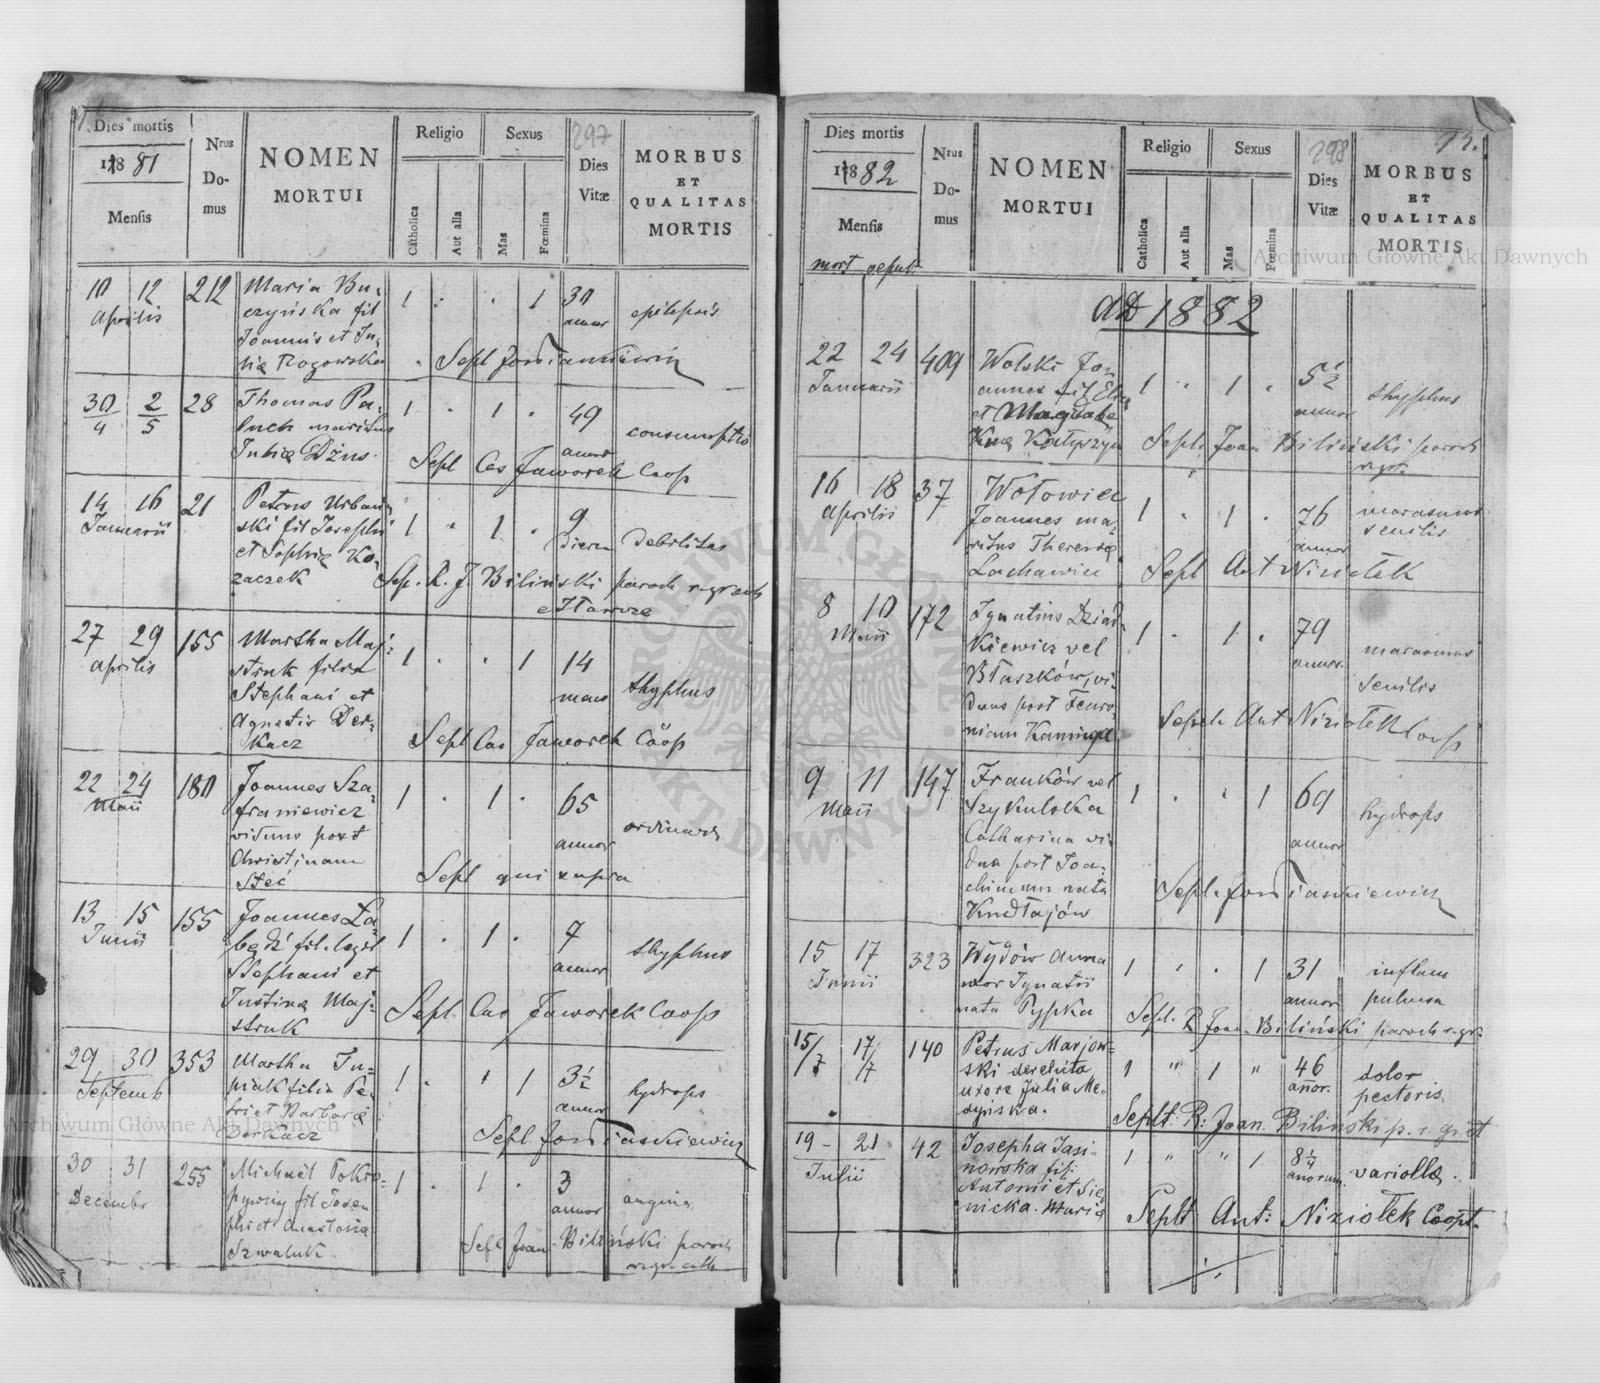 Dies mortis
1788 81
Mensis
Nrus
Do-
mus
NOMEN
MORTUI
Religio
Catholica
Aut alia
Sexus
Mas
Fœmina
297
Dies
Vitæ
MORBUS
ET
QUALITAS
MORTIS
10 12
Aprilis
212
Maria Bu-
czyńska fil
Joannis et Ju-
liæ Rogowska
1 . . 1
30
annor
epilepsis
30/4 2/5
28
Thomas Pa-
luch maritus
Juliæ Dżus
1 . 1 .
49
annor
consumptio
Sepl Cas Jaworek Coop
14 16
Januarii
21
Petrus Urbań
ski fil Josephi
et Sophiæ Ko-
zaczek
1 . 1 .
9
dierum
debilitas
Sep. R. J. Biliński paroch
27 29
Aprilis
155
Martha Maj-
struk filia
Stephani et
Agnetis Der-
kacz
1 . . 1
14
mens
thyphus
Sepl Cas Jaworek Coop
22 24
Maii
180
Joannes Sza-
franiewicz
viduus post
Christinam
Steć
1 . 1 .
65
annor
ordinaria
Sepl qui supra
13 15
Junii
155
Joannes Ła-
będź fil. legit
Stephani et
Justinæ Maj-
struk
1 . 1 .
7
annor
thyphus
Sepl. Cas Jaworek Coop
29 30
Septemb
353
Martha
filia Pe-
tri et Barbaræ
Derkacz
1 . 1
3 1/2
annor
hydrops
30 31
Decembr
255
Michaël
fil Jose-
phi et Anastasiæ
Szwaluk
1 . 1 .
3
annor
angina
Sepl Joan Biliński paroch
Dies mortis
1788 82
Mensis
mort sepult
Nrus
Do-
mus
NOMEN
MORTUI
Religio
Catholica
Aut alia
Sexus
Mas
Fœmina
298
Dies
Vitæ
MORBUS
ET
QUALITAS
MORTIS
AD 1882
22 24
Januarii
409
Wolski Jo-
annes fil
et Magdale
1 . 1 .
5 1/2
annor
thyphus
Sepl. Joan Biliński paroch
16 18
Aprilis
37
Wołowiec
Joannes ma-
ritus Theresiæ
1 . 1 .
76
annor
marasmus
senilis
Sepl Ant Niziołek
8 10
Maii
172
Ignatius Dziad-
kiewicz vel
Błaszków, vi-
duus post Feuro-
niam
1 . 1 .
79
annor.
marasmus
senilis
Sepel Ant Niziołek Coop
9 11
Maii
147
Franków vel
Catharina vi-
dua post Joa-
chimum nata
Kudłajów
1 . . 1
69
annor
hydrops
15 17
Junii
323
Wydów Anna
uxor Ignatii
nata Pypka
1 . . 1
31
annor
inflam
pulmon
Sepl. R Joan. Biliński paroch
15/7 17/7
140
Petrus Marjow-
ski derelicta
uxore Julia Me-
dyńska.
1 " 1 "
46
añor.
dolor
pectoris
Seplt: R: Joan. Biliński
19 - 21
Julii
42
Josepha Jasi-
nowska fil:
Antonii et Sie-
nicka Maria
1 " " 1
8 1/4
anorum
variollæ.
Seplt Ant: Niziołek Coopt.
Archiwum Główne Akt Dawnych
Archiwum Główne Akt Dawnych
ARCHIWUM GŁÓWNE AKT DAWNYCH